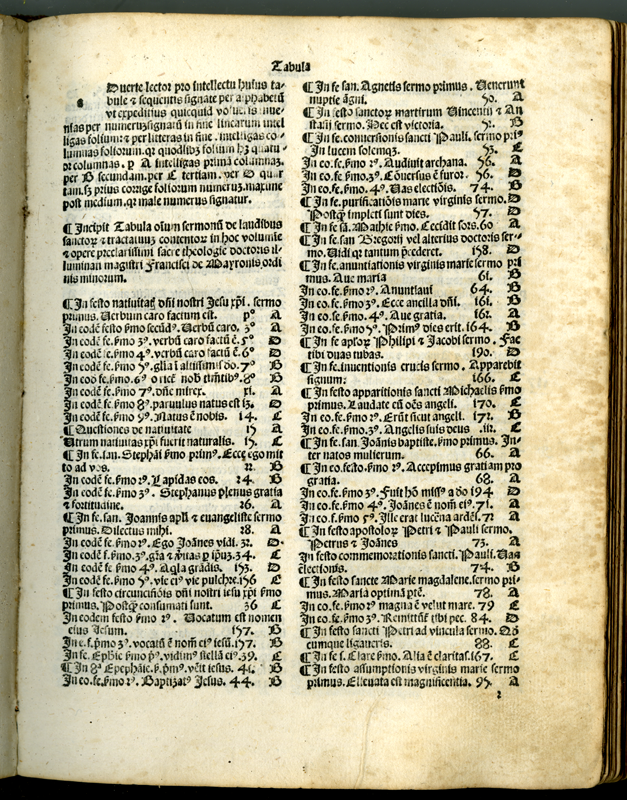 Tabula
Duerte lector pro intellectu huius ta-
bule ⁊ sequentis signate per alphabetũ
vt expeditius quicquid volueris inue-
nias per numerũ signatũ in fine linearum intel
ligas folium ⁊ per litteras in fine. intelligas co-
lumnas foliorum. qr quodlibz folium hz quatu-
or columnas. ⁊ p A intelligas primã columnaz.
per B secundam. per C tertiam. per D quar
tam. sz prius corrige foliorum numeruz. maxime
post medium. qr male numerus signatur.
¶ Incipit Tabula oĩum sermonũ de laudibus
sanctoꝝ ⁊ tractatuũ contentoꝝ in hoc volumĩe
⁊ opere preclarissimi sacre theologie doctoris il-
luminati magistri Francisci de Mayronis ordi
nis minorum.
¶ In festo natiuitat dñi nostri Jesu xp̃i. sermo
primus. Verbum caro factum est. pº A
In codẽ festo ẜmo secũdꝰ. Verbũ caro. 3º A
In codẽ fe. ẜmo 3ꝰ. verbũ caro factũ ẽ. 5º D
In codẽ fe. ẜmo 4ꝰ. verbũ caro factũ ẽ. 6º D
In codẽ fe. ẜmo 5ꝰ. glia ĩ altissimis dõ. 7º B
In eod fe. ẜmo. 6ꝰ 8º B
In codẽ fe. ẜmo 7ꝰ. dñe mirex. xi. A
In codẽ fe. ẜmo 8ꝰ. paruulus natus est 13. D
In codẽ fe. ẜmo 9ꝰ. Natus ẽ nobis. 14. C
¶ Questiones de natiuitate 15 A
Utrum natiuitas xp̃i fuerit naturalis. 15. C
¶ In fe. san. Stephãi ẜmo primꝰ. Ecce ego mit
to ad vos. 22. B
In codẽ fe. ẜmo 2ꝰ. Lapidas eos. 24. B
In codẽ fe. ẜmo 3ꝰ. Stephanus plenus gratia
⁊ fortitudine. 26. A
¶ In fe. san. Joannis apl̃i ⁊ euangeliste sermo
primus. Dilectus mihi. 28. A
In codẽ fe. ẜmo 2ꝰ. Ego Joãnes vidi. 32. D
In codẽ f. ẜmo. 3ꝰ. gr̃a ⁊ ṽitas p ip̃uz. 34. C
In codẽ fe. ẜmo 4ꝰ. Aq̃la grãdis. 153. D
In codẽ fe. ẜmo 5ꝰ. vie eiꝰ vie pulchre. 156 C
¶ In festo circuncisiõis dñi nostri iesu xp̃i ẜmo
primus. Postq̃ consumati sunt. 36 C
In eodem festo ẜmo 2ꝰ. Vocatum est nomen
eius Jesum. 157. B
In e. f. ẜmo 3ꝰ. vocatũ ẽ nomẽ eiꝰ iesu. 157. B
In fe. Ephie ẜmo p̃ꝰ. vidimꝰ stellã eiꝰ. 39. C
Epephãie. ẜ. p̃mꝰ. vẽit iesus. 44. B
In eo. fe. ẜmo 2ꝰ. Baptizatꝰ Jesus. 44. B
¶ In fe san. Agnetis sermo primus. Venerunt
nuptie agni. 50. A
¶ In festo sanctoꝝ martirum Vincentij ⁊ An
stasij sermo. Hec est victoria. 52. B
¶ In fe. conuersionis sancti Pauli. sermo priꝰ
In lucem solemqz. 53. C
In eo. fe. ẜmo 2ꝰ. Audiuit archana. 56. A
In eo. fe. ẜmo 3ꝰ. Cõuersus ẽ furor. 56. D
In eo. fe. ẜmo. 4ꝰ. Uas electiõis. 74. B
¶ In fe. purificatiõis marie virginis sermo. D
Postq̃ impleti sunt dies. 57. D
¶ In fe sã. Mathie ẜmo. Cecidit sors. 60 A
¶ In fe. san Gregorij vel alterius doctoris ser-
mo. Uidi qr tantum p̃cederet. 158. D
¶ In fe. anuntiationis virginis marie sermo pri
mus. Aue maria 61. B
In eo. fe. ẜmo 2ꝰ. Anuntiaui 64. B
In eo. fe. ẜmo 3ꝰ. Ecce ancilla dñi. 161. B
In eo. fe. ẜmo. 4ꝰ. Aue gratia. 162. A
In eo. fe. ẜmo 5ꝰ. Primꝰ dies erit. 164. B
¶ In fe apl̃oꝝ Philipi ⁊ Jacobi sermo. Fac
tibi duas tubas. 190. D
¶ In fe. inuentionis crucis sermo. Apparebit
signum. 166. C
¶ In festo apparitionis sancti Michaelis ẜmo
primus. Laudate eũ oẽs angeli. 170. C
In eo. fe. ẜmo 2ꝰ. Erũt sicut angeli. 172. B
In eo. fe. ẜmo. 3ꝰ. Angelis suis deus C
¶ In fe. san. Joãnis baptiste. ẜmo primus. In-
ter natos mulierum 66. A
¶ In eo. festo. ẜmo 2ꝰ. Accepimus gratiam pro
gratia. 68. A
In eo. fe. ẜmo 3ꝰ. Fuit hõ missꝰ a deo 194 D
In eo. fe. ẜmo 4ꝰ. Joãnes ẽ nomẽ eiꝰ. 71. A
In eo. f. ẜmo 5ꝰ. Ille erat lucerna ardẽs. 72 A
¶ In festo apostoloꝝ Petri ⁊ Pauli sermo.
Petrus ⁊ Joãnes 73. A
In festo commemorationis sancti. Pauli. Uas
electionis. 74. B
¶ In festo sancte Marie magdalene. sermo pri-
mus. Maria optimã ptẽ. 78. A
In eo. fe. ẜmo 2ꝰ magna ẽ velut mare. 79 C
In eo. fe. ẜmo. 3ꝰ. Remittũtꝰ tibi pec. 84. D
¶ In festo sancti Petri ad vincula sermo. Qd
cumque ligaueris. 88. C
¶ In fe s. Clare ẜmo. Alia ẽ claritas. 167. C
¶ In festo assumptionis virginis marie sermo
primus. Elleuata est magnificentia. 95. A
2